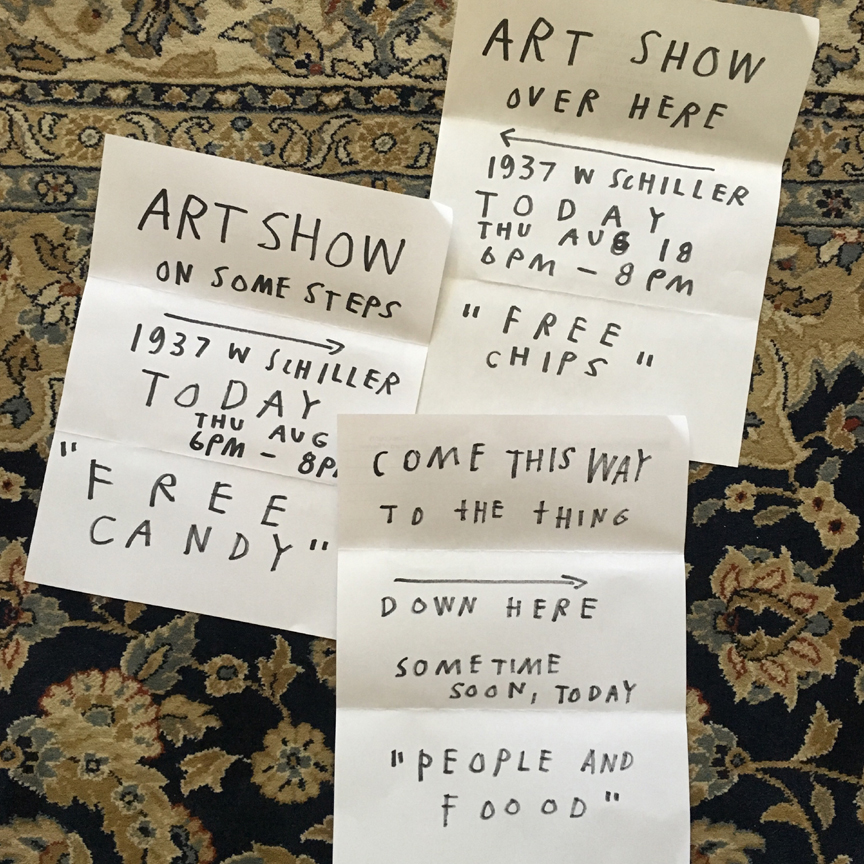 ART SHOW
OVER HERE
1937 W SCHILLER
TODAY
THU AUG 18
6PM - 8PM
"FREE
CHIPS"
ART SHOW
ON SOME STEPS
1937 W SCHILLER
TODAY
THU AUG
6PM - 8P
"FREE
CANDY"
COME THIS WAY
TO tHE tHING
DOWN HERE
SOMETIME
SOON, TODAY
"PEOPLE AND
FOOOD"